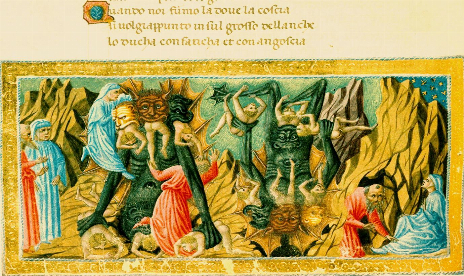 Quando noi fumo la doue la coscia
si uolgiappunto in sul grosso dellanche
lo ducha con faticha et con angoscia